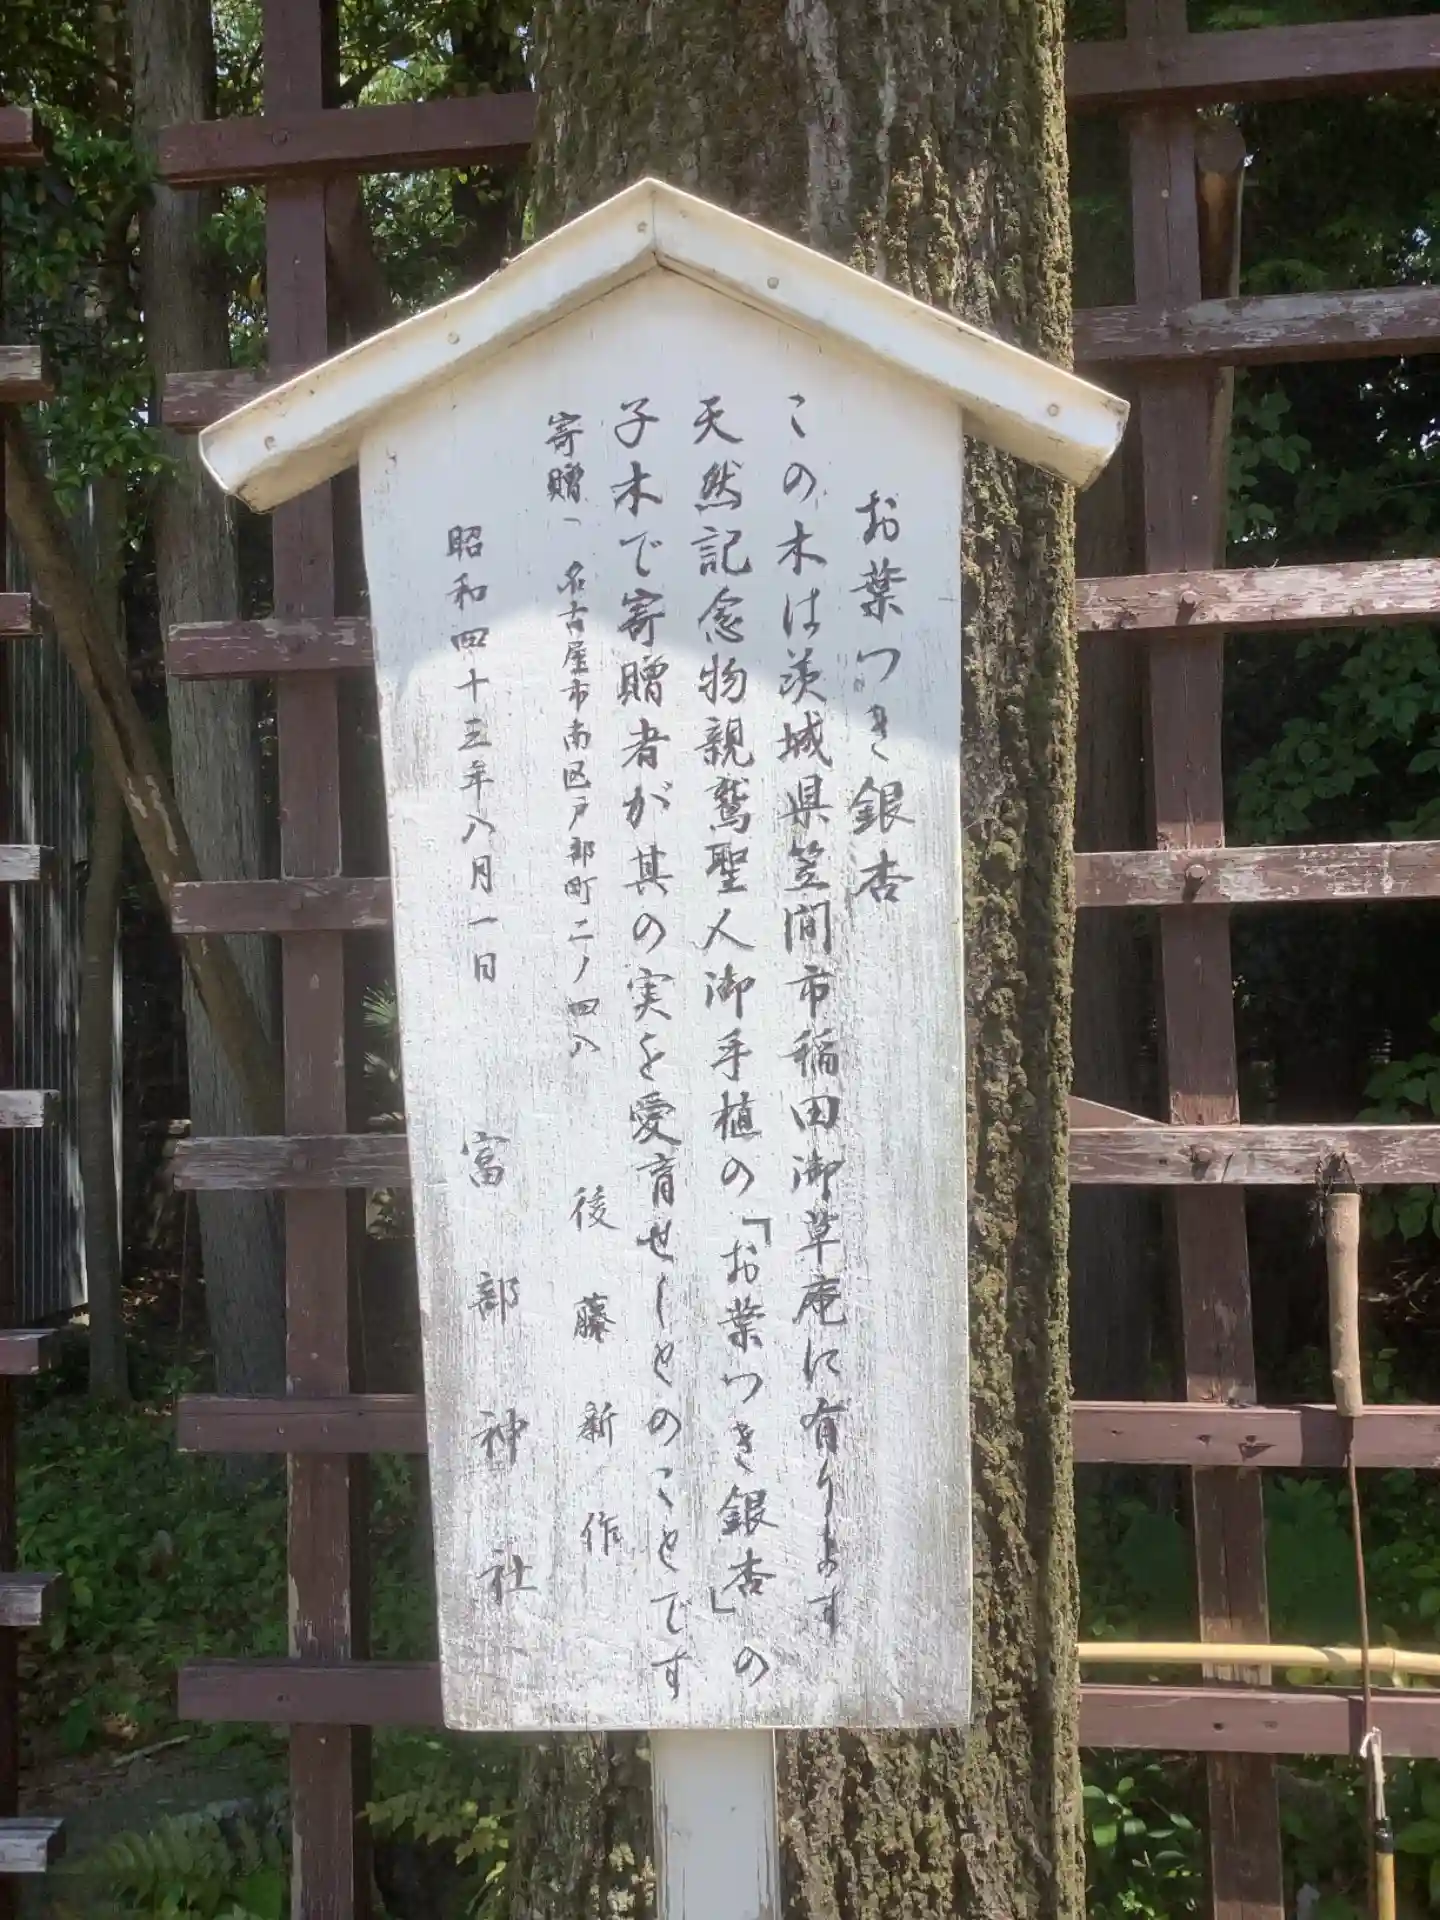 お葉つき銀杏
この木は茨城県笠間市稲田御草庵に有ります
天然記念物親鸞聖人御手植の「お葉つき銀杏」の
子木で寄贈者が其の実を愛育せしとのことです
寄贈 名古屋市南区戸部町二ノ四八
後藤新作
昭和四十三年八月一日
富部神社